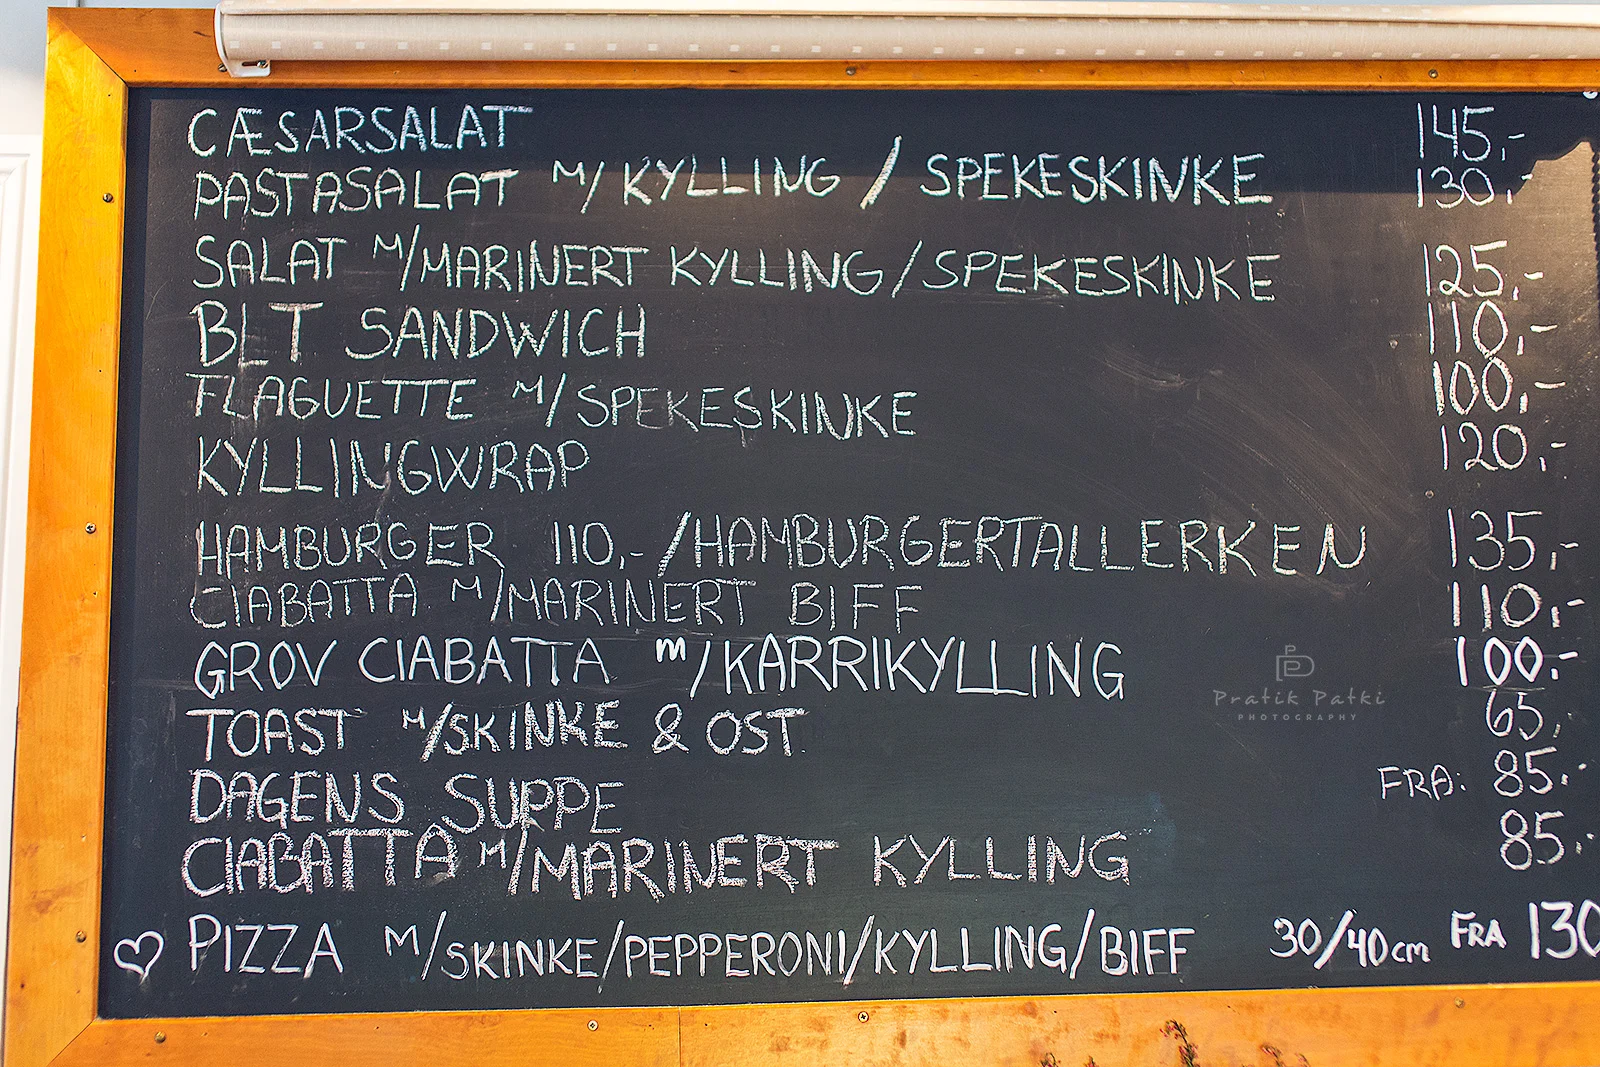 CÆSARSALAT 145,-
PASTASALAT M/KYLLING / SPEKESKINKE 130,-
SALAT M/MARINERT KYLLING/SPEKESKINKE 125,-
BLT SANDWICH 110,-
FLAGUETTE M/SPEKESKINKE 100,-
KYLLINGWRAP 120,-
HAMBURGER 110,- /HAMBURGERTALLERKEN 135,-
CIABATTA M/MARINERT BIFF 110,-
GROV CIABATTA m/KARRIKYLLING 100,-
TOAST M/SKINKE & OST 65,-
DAGENS SUPPE FRA: 85,-
CIABATTA M/MARINERT KYLLING 85,-
PIZZA M/SKINKE/PEPPERONI/KYLLING/BIFF 30/40cm FRA 130
Pratik Patki
PHOTOGRAPHY